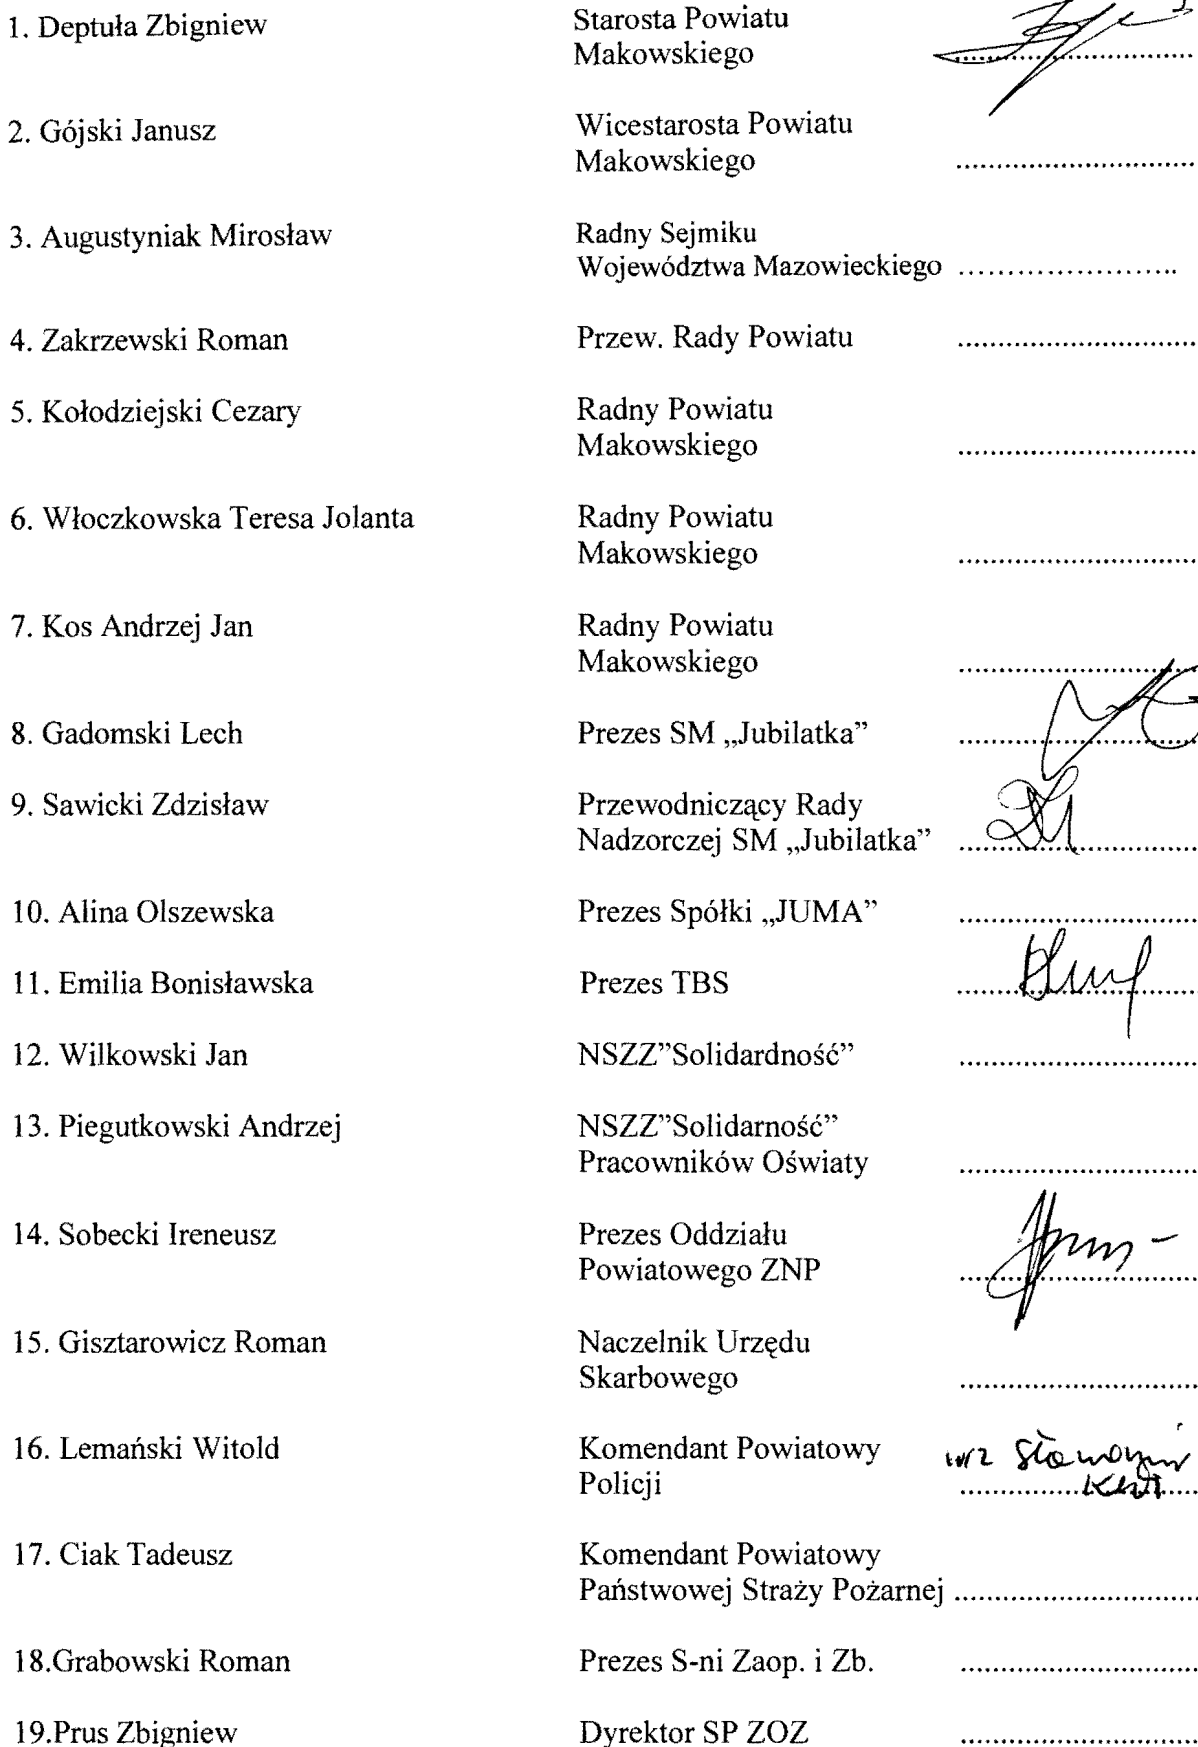 1. Deptuła Zbigniew Starosta Powiatu
Makowskiego ..............................
2. Gójski Janusz Wicestarosta Powiatu
Makowskiego ..............................
3. Augustyniak Mirosław Radny Sejmiku
Województwa Mazowieckiego ........................
4. Zakrzewski Roman Przew. Rady Powiatu ..............................
5. Kołodziejski Cezary Radny Powiatu
Makowskiego ..............................
6. Włoczkowska Teresa Jolanta Radny Powiatu
Makowskiego ..............................
7. Kos Andrzej Jan Radny Powiatu
Makowskiego ..............................
8. Gadomski Lech Prezes SM „Jubilatka” ..............................
9. Sawicki Zdzisław Przewodniczący Rady
Nadzorczej SM „Jubilatka” ..............................
10. Alina Olszewska Prezes Spółki „JUMA” ..............................
11. Emilia Bonisławska Prezes TBS ..............................
12. Wilkowski Jan NSZZ”Solidardność” ..............................
13. Piegutkowski Andrzej NSZZ”Solidarność”
Pracowników Oświaty ..............................
14. Sobecki Ireneusz Prezes Oddziału
Powiatowego ZNP ..............................
15. Gisztarowicz Roman Naczelnik Urzędu
Skarbowego ..............................
16. Lemański Witold Komendant Powiatowy
Policji ..............................
17. Ciak Tadeusz Komendant Powiatowy
Państwowej Straży Pożarnej ..............................
18.Grabowski Roman Prezes S-ni Zaop. i Zb. ..............................
19.Prus Zbigniew Dyrektor SP ZOZ ..............................